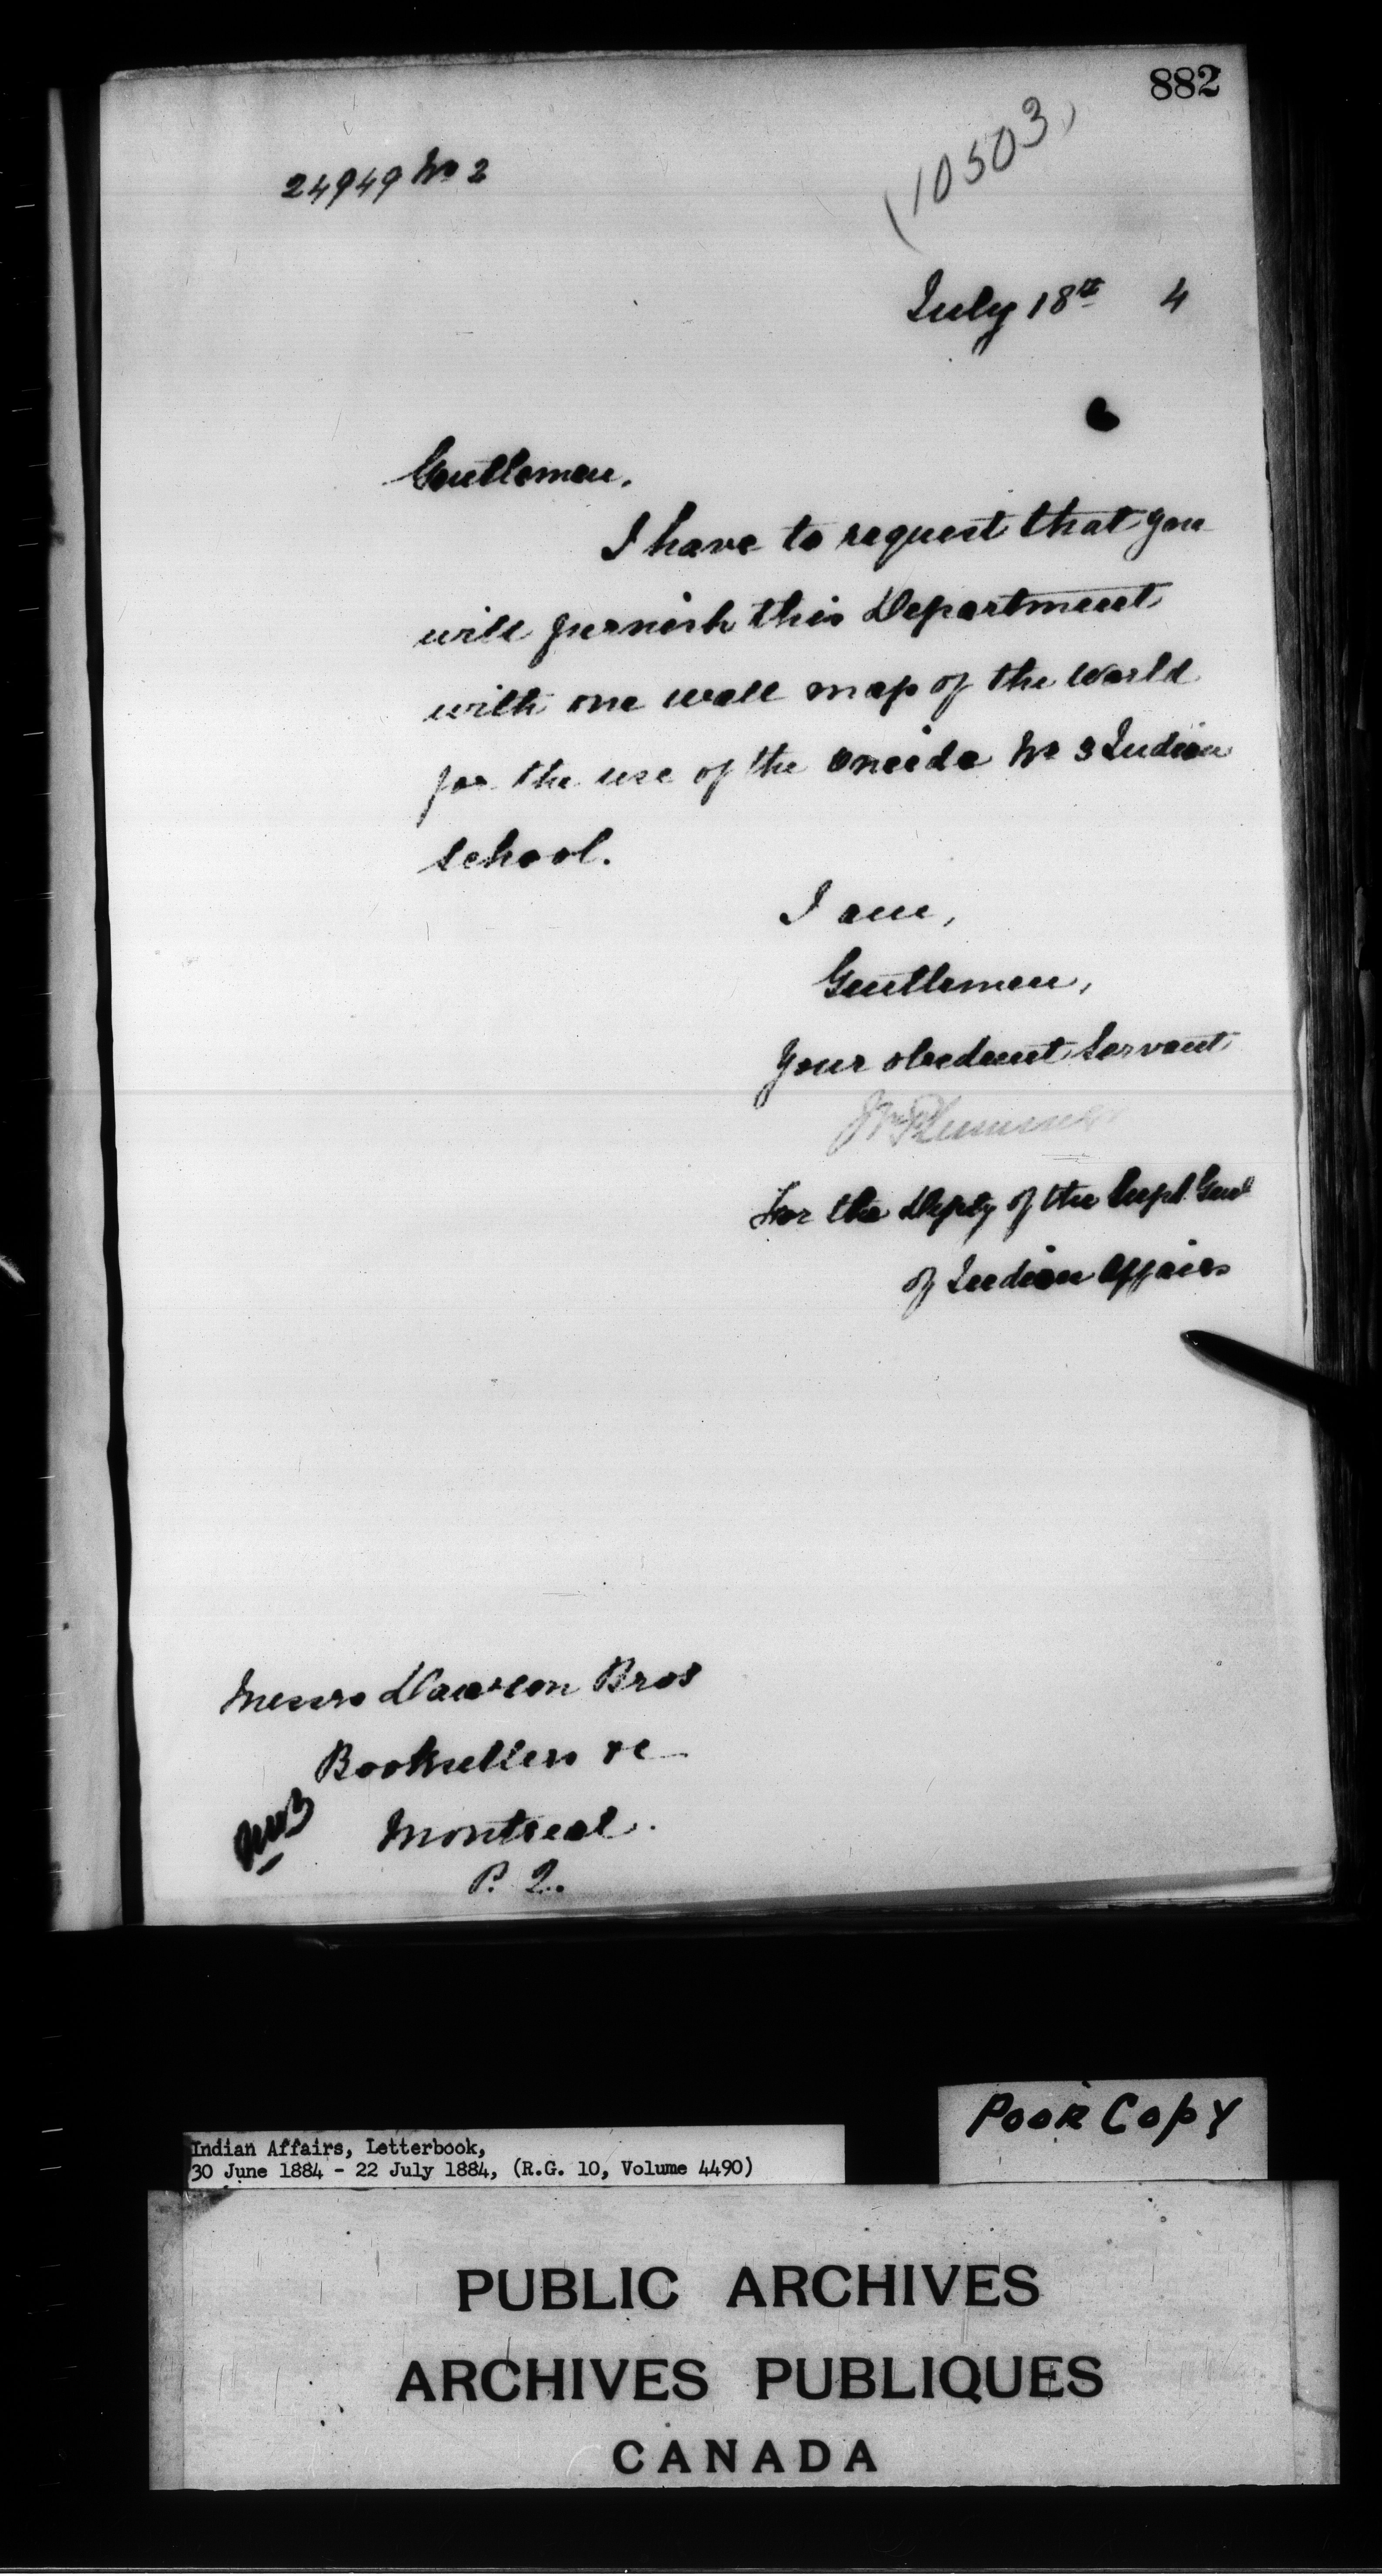 882
24949 No 2
(10503)
July 18th 4
Gentlemen.
I have to request that you
will furnish this Department
with one wall map of the World
for the use of the Oneida No 3 Indian
school.
I am,
Gentlemen,
Your obedient Servant
Plummer
For the Depty of the Supt. Genl
of Indian Affairs
Messrs Dawson Bros
Booksellers &c
Montreal.
P. Q.
Poor Copy
Indian Affairs, Letterbook,
30 June 1884 - 22 July 1884, (R.G. 10, Volume 4490)
PUBLIC ARCHIVES
ARCHIVES PUBLIQUES
CANADA